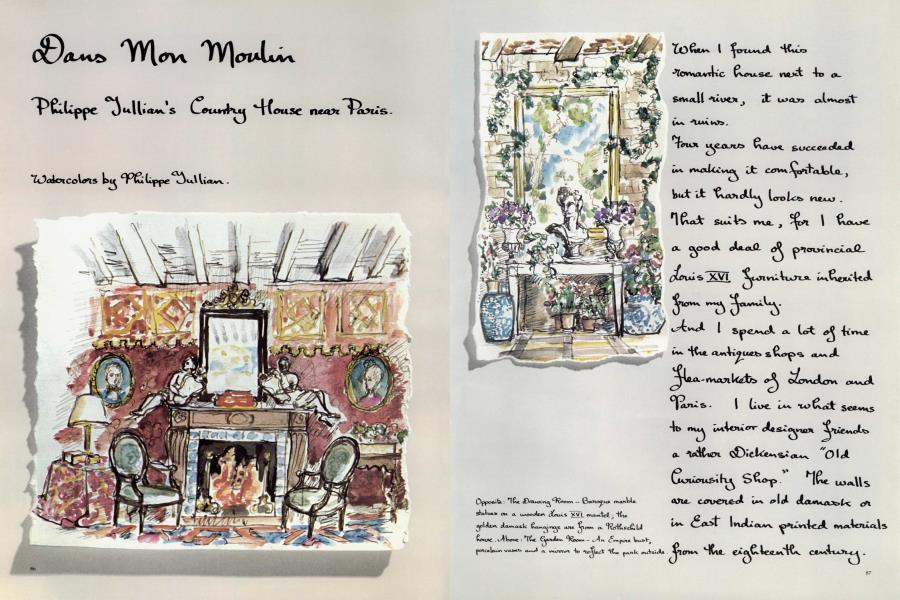 Dans Mon Moulin
Philippe Jullian's Country House near Paris.
Watercolors by Philippe Jullian.
86
When I found this
romantic house next to a
small river, it was almost
in ruins.
Four years have succeeded
in making it comfortable,
but it hardly looks new.
That suits me, for I have
a good deal of provincial
Louis XVI furniture inherited
from my family.
And I spend a lot of time
in the antiques shops and
flea-markets of London and
Paris. I live in what seems
to my interior designer friends
a rather Dickensian "Old
Curiousity Shop." The walls
are covered in old damask or
in East Indian printed materials
from the eighteenth century.
Opposite: The Drawing Room – Baroque marble
statues on a wooden Louis XVI mantel, the
golden damask hangings are from a Rothschild
house. Above: The Garden Room – An Empire bust,
porcelain vases and a mirror to reflect the park outside.
87